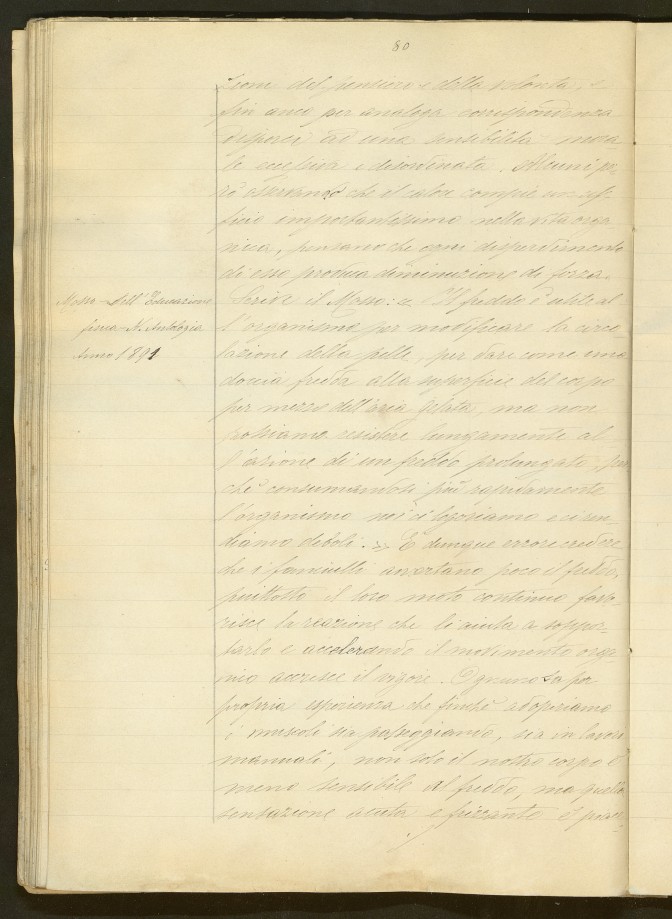 80
zione del pensiero e della volontà, e
fin anco per analoga corrispondenza
disporci ad una sensibilità mora-
le eccessiva e disordinata. Alcuni pe-
rò osservando che il calore compie un uf-
ficio importantissimo nella vita orga-
nica, pensano che ogni disperdimento
di esso produca diminuzione di forza.
Mosso - Dell'Educazione
fisica - N. Antologia
Anno 1891
Scrive il Mosso: « Il freddo è utile al
l'organismo per modificare la circo-
lazione della pelle, per dare come una
doccia fredda alla superficie del corpo
per mezzo dell'aria gelata, ma non
possiamo resistere lungamente al
l'azione di un freddo prolungato, per
chè consumandosi più rapidamente
l'organismo noi ci logoriamo e ci ren-
diamo deboli. » È dunque errore credere
che i fanciulli avvertano poco il freddo,
piuttosto il loro moto continuo favo-
risce la reazione che li aiuta a soppor-
tarlo e accelerando il movimento orga-
nico accresce il vigore. Ognuno sa per
propria esperienza che finchè adoperiamo
i muscoli sia passeggiando, sia in lavori
manuali, non solo il nostro corpo è
meno sensibile al freddo, ma quella
sensazione acuta e frizzante ci piace